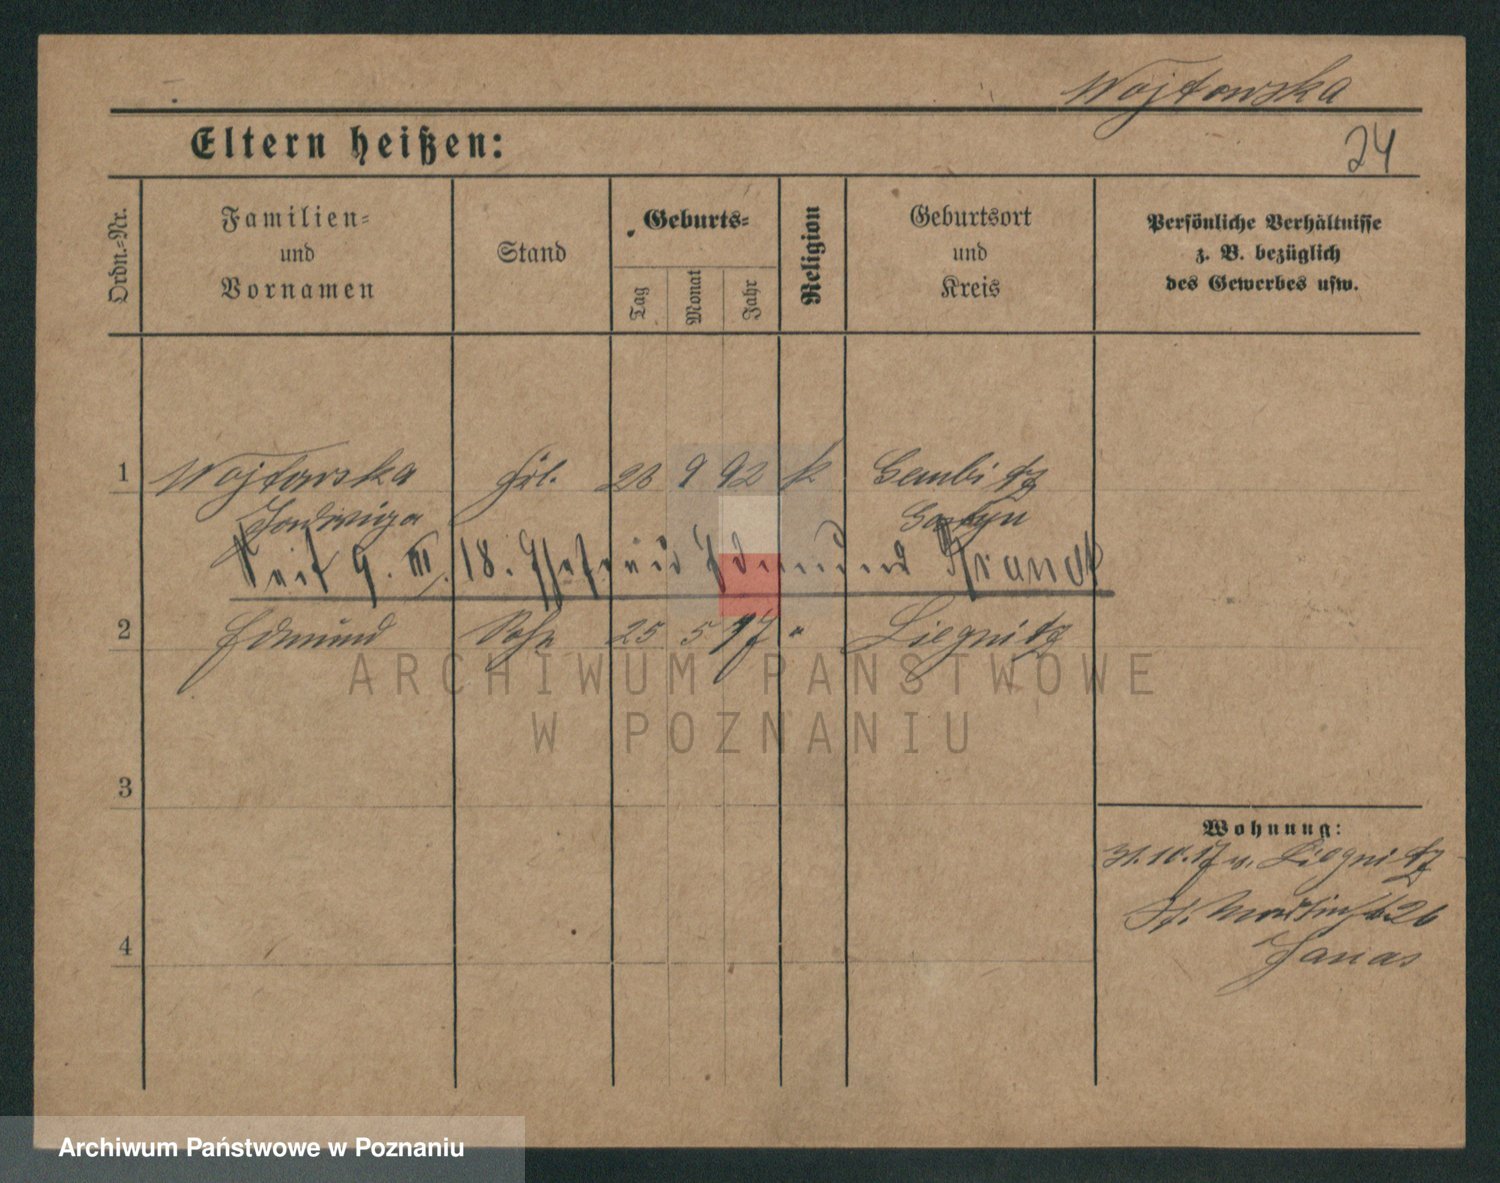 Wojtowska
Eltern heißen:
24
Ordn.-Nr.
Familien-
und
Vornamen
Stand
Geburts-
Tag
Monat
Jahr
Religion
Geburtsort
und
Kreis
Persönliche Verhältnisse
z. B. bezüglich
des Gewerbes usw.
1 Wojtowska Frl. 28 9 92 k Gembitz
Jadwiga Gostyn
Seit 9. III. 18. Ehefrau Edmund Brandt
2 Edmund Sohn 25 5 17 " Liegnitz
ARCHIWUM PAŃSTWOWE
W POZNANIU
3
Wohnung:
31.10.17 v. Liegnitz
St. Martinstr 26
Janas
4
Archiwum Państwowe w Poznaniu